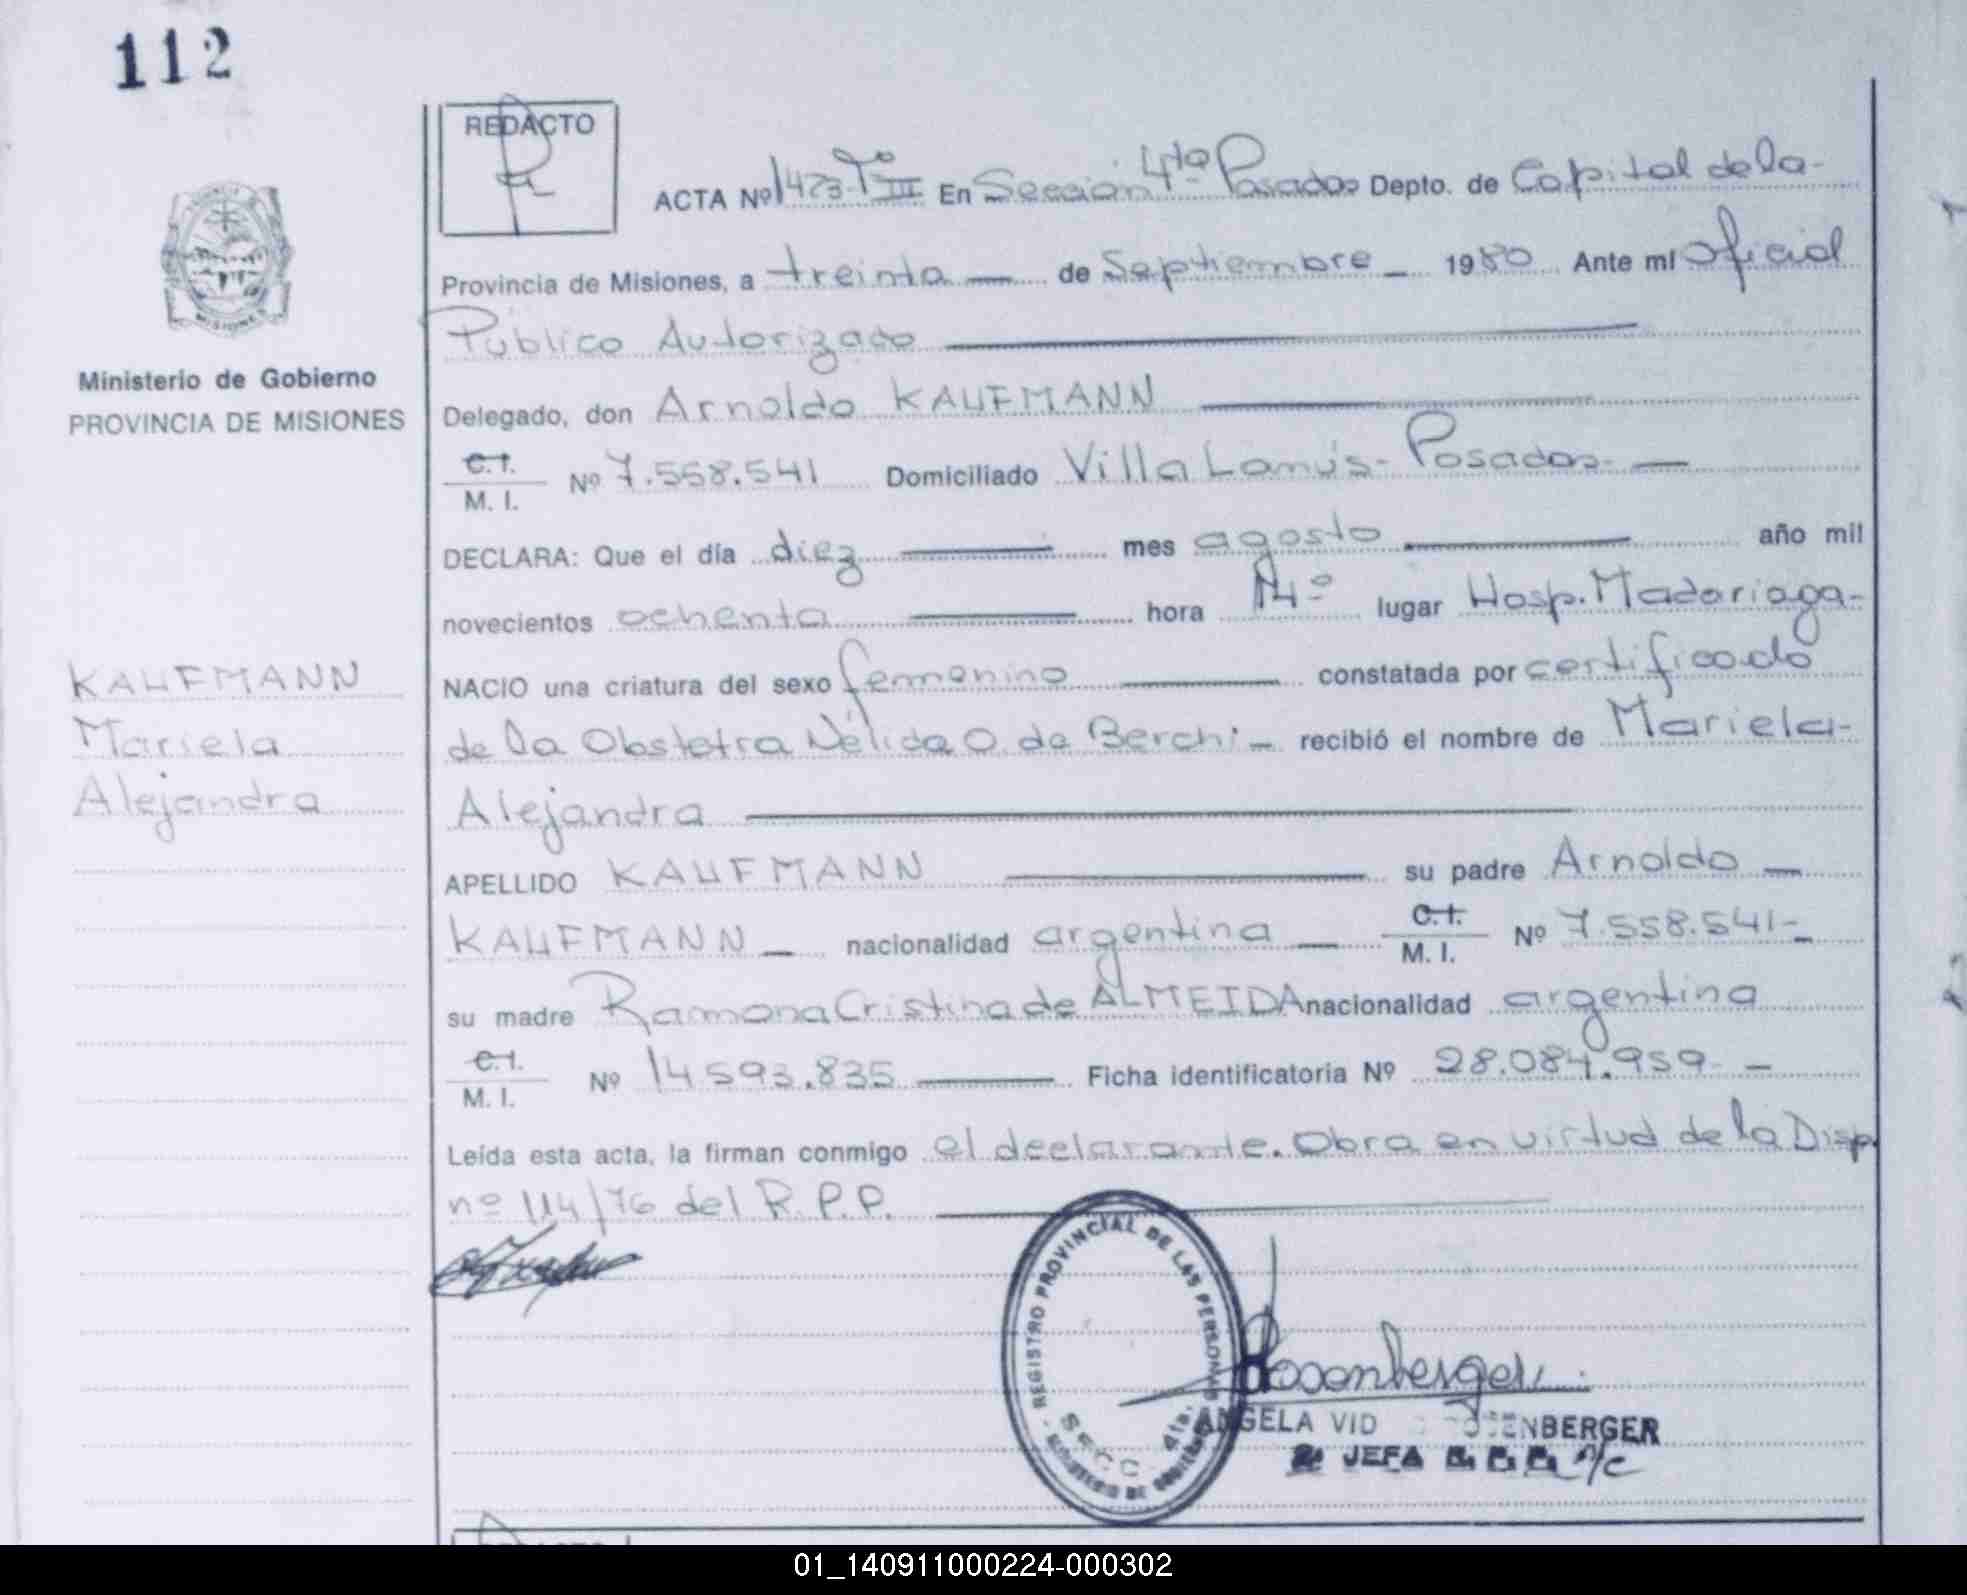 112
REDACTO
ACTA Nº 1473-Tº III En Sección 4ta Posadas Depto. de Capital de la-
Provincia de Misiones, a treinta — de Septiembre - 1980 Ante mí Oficial
Público Autorizado
MISIONES
Ministerio de Gobierno
PROVINCIA DE MISIONES
Delegado, don Arnoldo KAUFMANN
C.I.
M. I. Nº 7.558.541 Domiciliado Villa Lanús- Posadas- —
DECLARA: Que el día diez mes agosto año mil
novecientos ochenta hora 14º lugar Hosp. Madariaga-
KAUFMANN
Mariela
Alejandra
NACIO una criatura del sexo femenino constatada por certificado
de la Obstetra Nélida O. de Berchi - recibió el nombre de Mariela-
Alejandra
APELLIDO KAUFMANN su padre Arnoldo —
KAUFMANN - nacionalidad argentina — C.I.
M. I. Nº 7.558.541-
su madre Ramona Cristina de ALMEIDA nacionalidad argentina
C.I.
M. I. Nº 14.593.835 Ficha identificatoria Nº 28.084.959- —
Leída esta acta, la firman conmigo el declarante. Obra en virtud de la Disp.
nº 114/76 del R.P.P.
REGISTRO PROVINCIAL DE LAS PERSONAS
SECC. 4ta.
MINISTERIO DE GOBIERNO
Rosenberger
ANGELA VID ENBERGER
JEFA
01_140911000224-000302